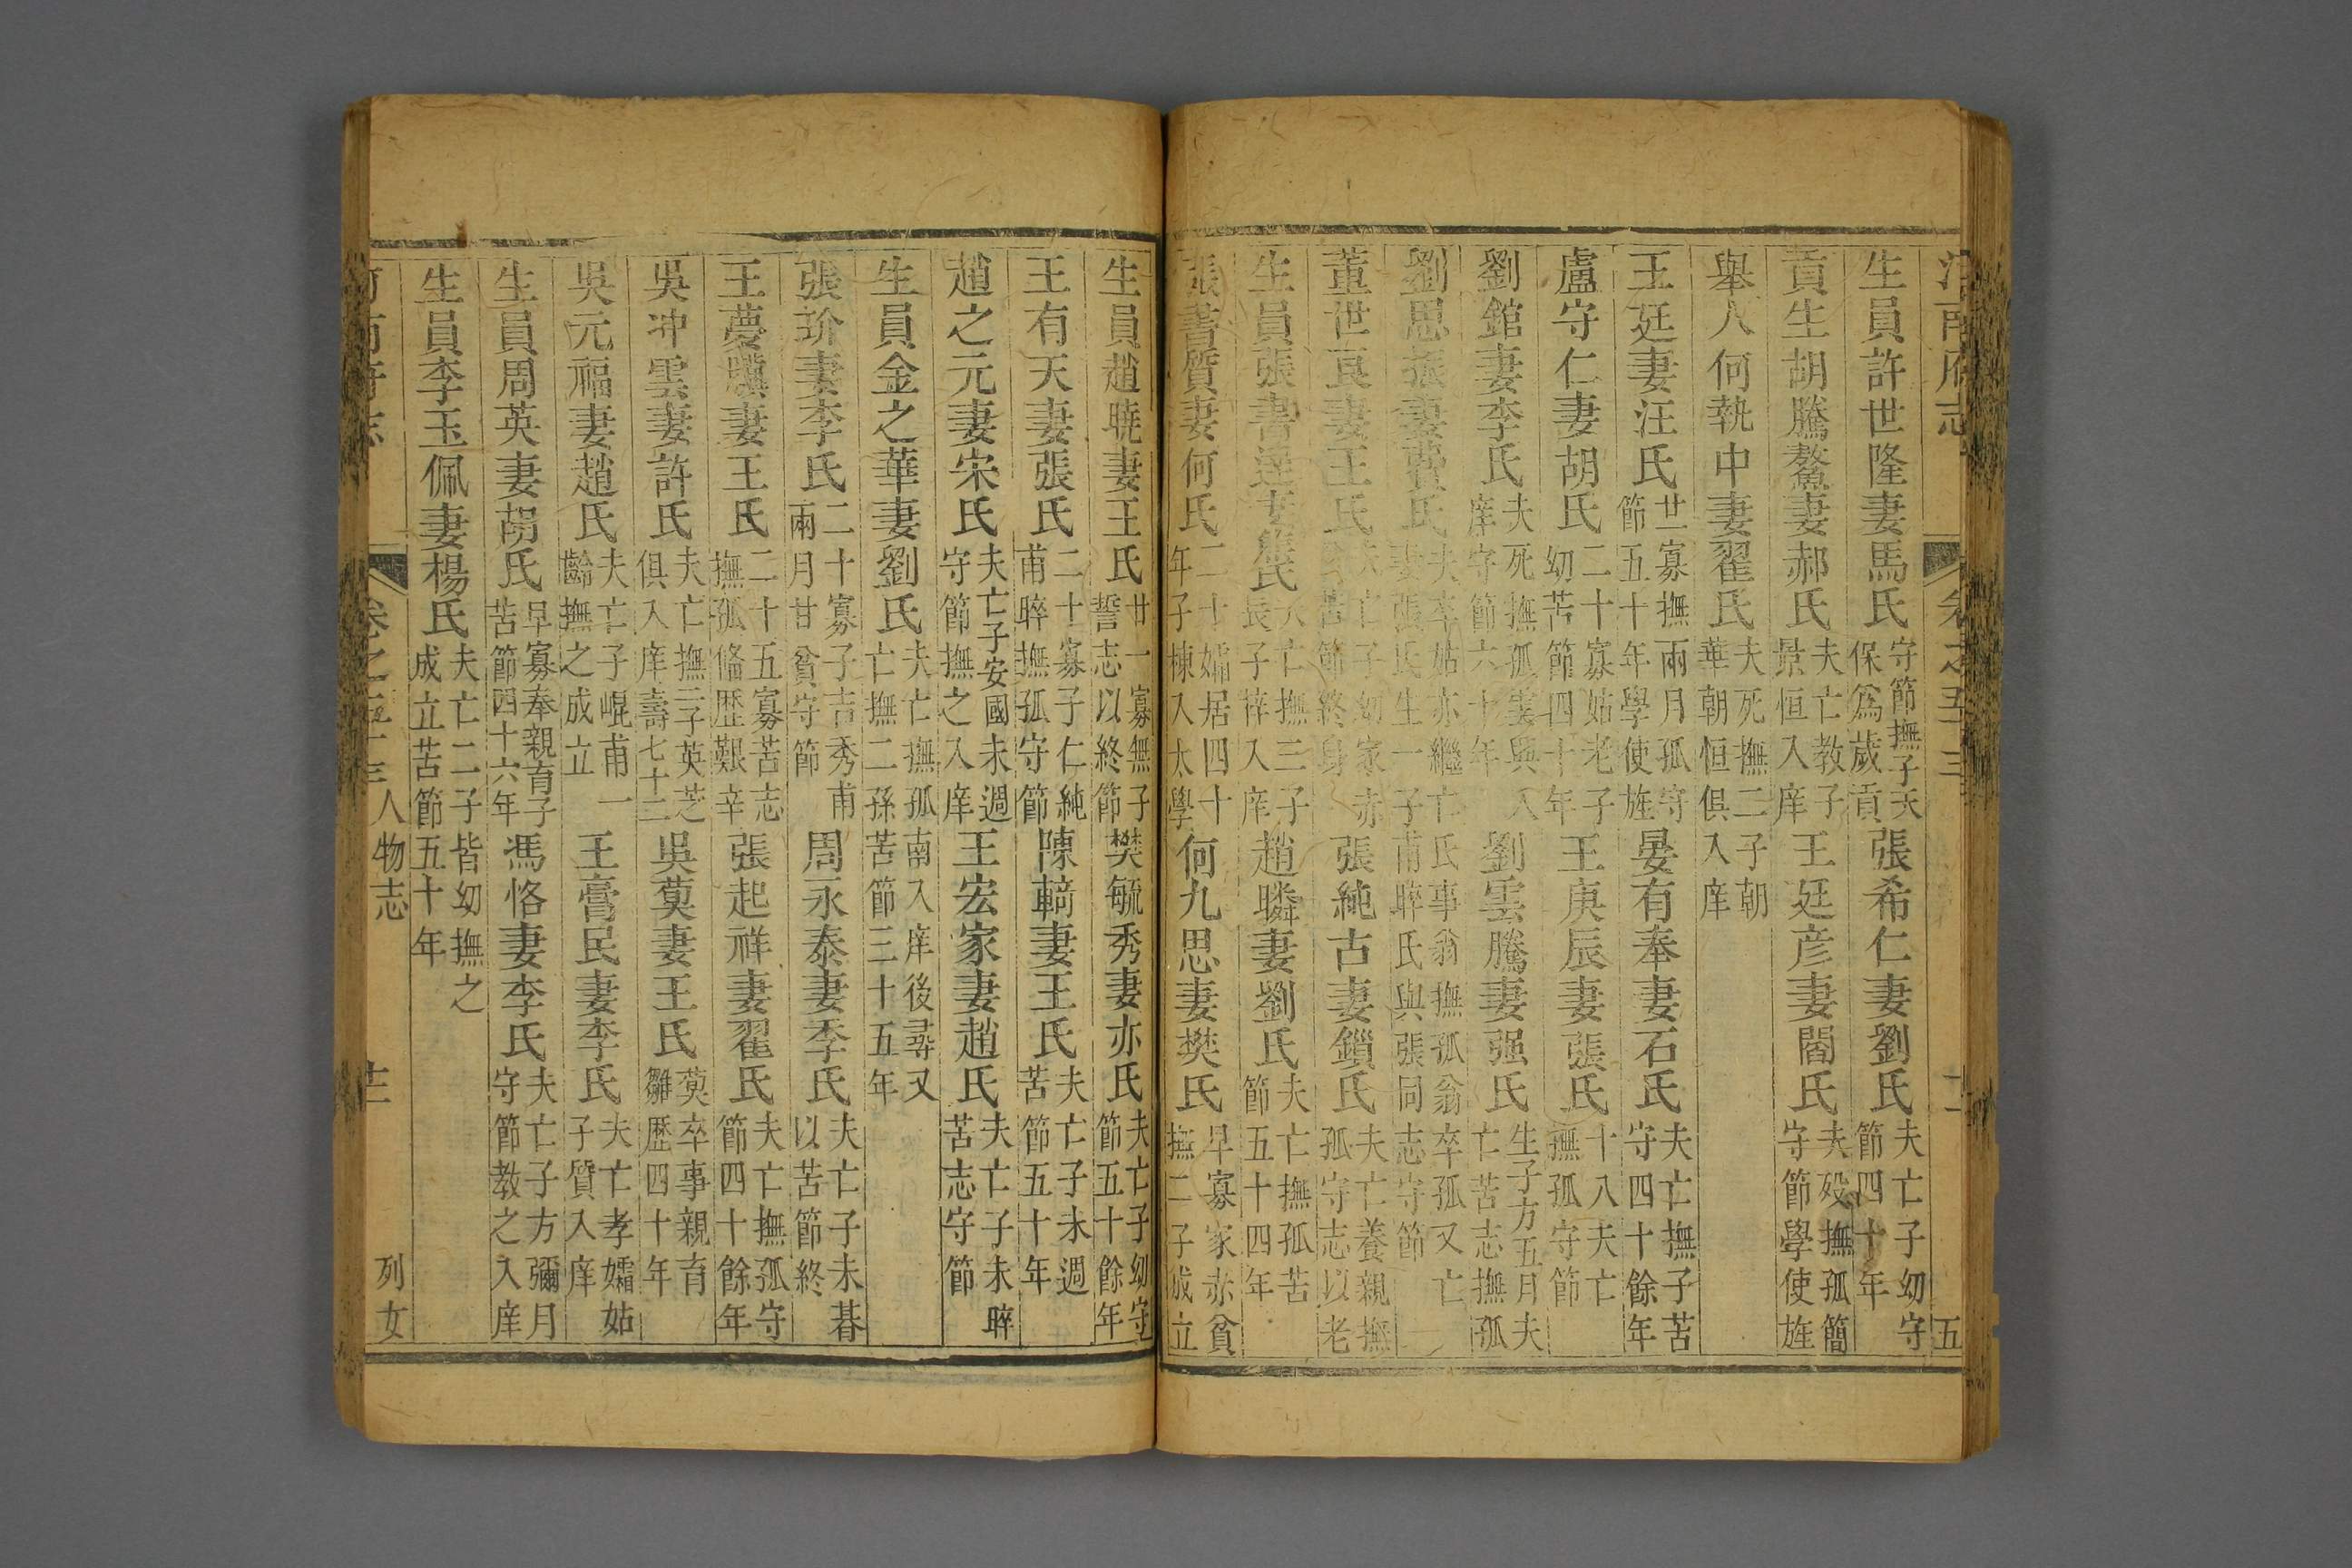 生員許世隆妻馬氏守節撫子天保爲歲貢張希仁妻劉氏夫亡子幼守節四十年
貢生胡騰鰲妻郝氏夫亡教子景恒入庠王廷彦妻閻氏夫歿撫孤簡守節學使旌
舉人何執中妻翟氏夫死撫二子朝華朝恒俱入庠
王廷妻汪氏廿一寡撫兩月孤守節五十年學使旌晏有奉妻石氏夫亡撫子苦守四十餘年
盧守仁妻胡氏二十寡姑老子幼苦節四十年王庚辰妻張氏十八夫亡撫孤守節
劉錧妻李氏夫死撫孤雲興入庠守節六十年劉雲騰妻强氏生子方五月夫亡苦志撫孤
劉思振妻費氏夫卒姑亦繼亡氏事翁撫孤翁卒孤又亡妻張氏生一子甫晬氏與張同志守節
董世良妻王氏夫亡子幼家赤苦節終身張純古妻鎖氏夫亡養親撫孤守志以老
生員張書 妻 氏夫亡撫三子長子梓入庠趙疄妻劉氏夫亡撫孤苦節五十四年
張書質妻何氏二十孀居四十年子棟入太學何九思妻樊氏早寡家赤貧撫二子成立
生員趙曉妻王氏廿一寡無子誓志以終節樊毓秀妻亦氏夫亡子幼守節五十餘年
王有天妻張氏二十寡子仁純甫晬撫孤守節陳輢妻王氏夫亡子未週苦節五十年
趙之元妻宋氏夫亡子安國未週守節撫之入庠王宏家妻趙氏夫亡子未晬苦志守節
生員金之華妻劉氏夫亡撫孤南入庠後尋又亡撫二孫苦節三十五年
張玠妻李氏二十寡子吉秀甫兩月甘貧守節周永泰妻李氏夫亡子未朞以苦節終
王夢驥妻王氏二十五寡苦志撫孤俻歴艱辛張起祥妻翟氏夫亡撫孤守節四十餘年
吳冲雲妻許氏夫亡撫二子英芝俱入庠壽七十二吳蓂妻王氏蓂卒事親育雛歴四十年
吳元福妻趙氏夫亡子崐甫一齡撫之成立王膏民妻李氏夫亡孝孀姑子質入庠
生員周英妻胡氏早寡奉親育子苦節四十六年馮恪妻李氏夫亡子方彌月守節教之入庠
生員李玉佩妻楊氏夫亡二子皆幼撫之成立苦節五十年
人物志 列女